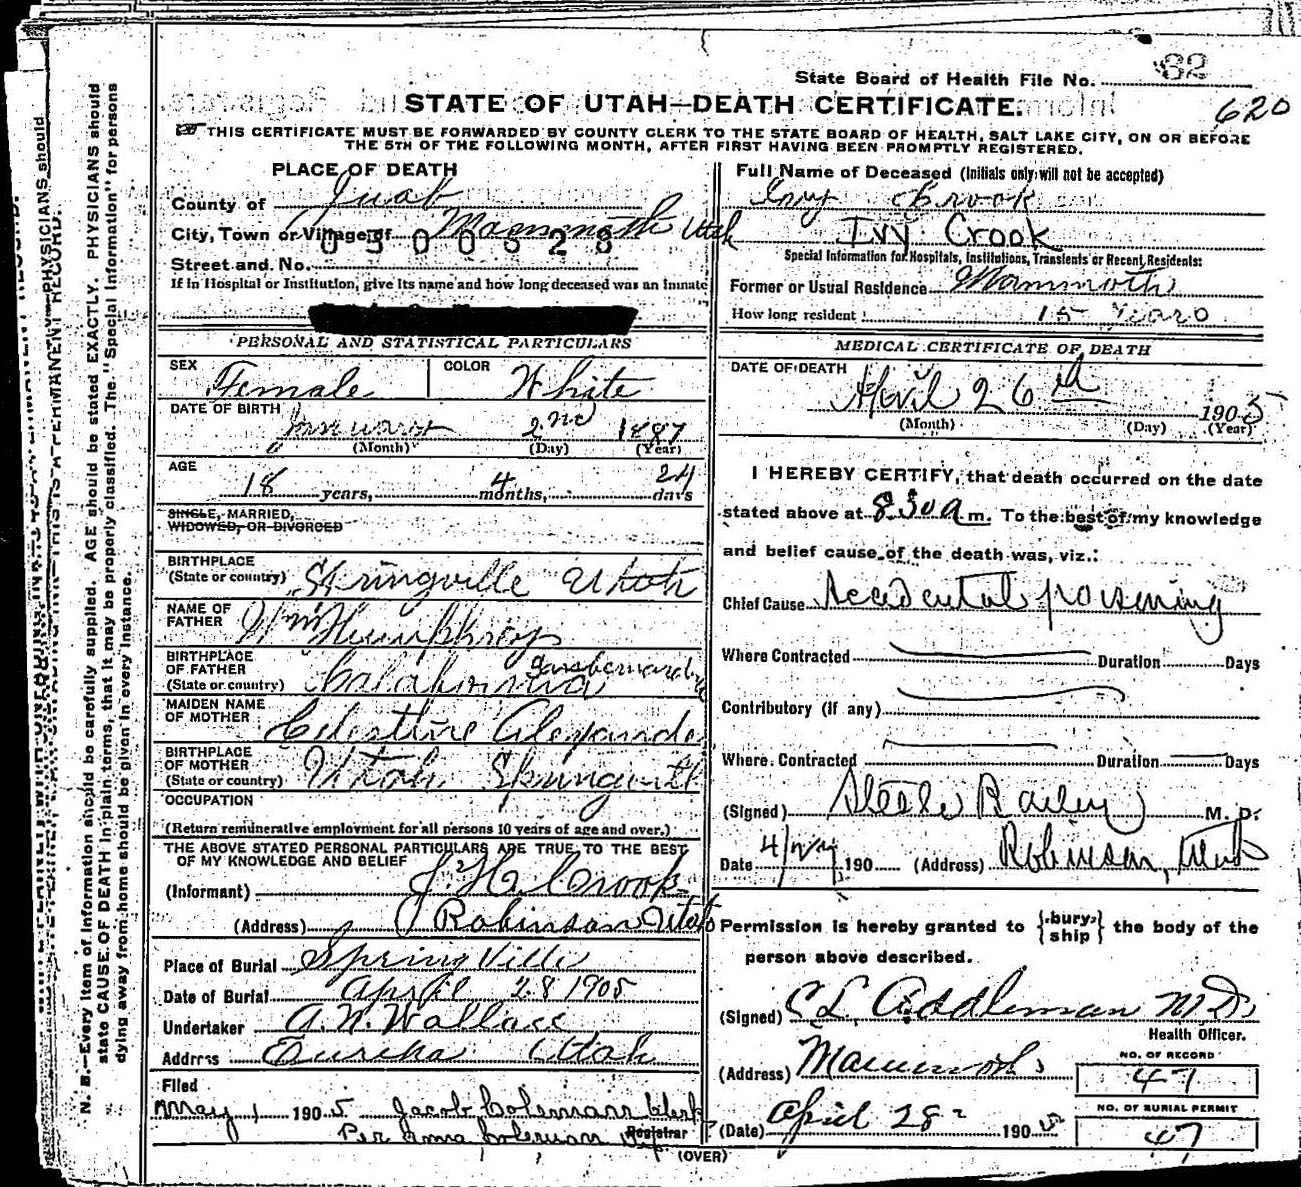 State Board of Health File No. 82
620
STATE OF UTAH—DEATH CERTIFICATE.
THIS CERTIFICATE MUST BE FORWARDED BY COUNTY CLERK TO THE STATE BOARD OF HEALTH, SALT LAKE CITY, ON OR BEFORE
THE 5TH OF THE FOLLOWING MONTH, AFTER FIRST HAVING BEEN PROMPTLY REGISTERED.
PLACE OF DEATH
County of Juab
City, Town or Village of Mammoth Utah
0500528
Street and No.
If in Hospital or Institution, give its name and how long deceased was an inmate
PERSONAL AND STATISTICAL PARTICULARS
SEX Female COLOR White
DATE OF BIRTH January 2nd 1887
(Month) (Day) (Year)
AGE
18 years, 4 months, 24 days
SINGLE, MARRIED,
WIDOWED, OR DIVORCED
BIRTHPLACE
(State or country) Springville Utah
NAME OF
FATHER Wm Humphreys
BIRTHPLACE
OF FATHER
(State or country)
MAIDEN NAME
OF MOTHER
BIRTHPLACE
OF MOTHER
(State or country) Utah
OCCUPATION
(Return remunerative employment for all persons 10 years of age and over.)
THE ABOVE STATED PERSONAL PARTICULARS ARE TRUE TO THE BEST
OF MY KNOWLEDGE AND BELIEF
(Informant) J. H. Crook
(Address) Robinson Utah
Place of Burial Springville
Date of Burial April 28 1905
Undertaker A. W. Wallace
Address Eureka Utah
Filed
May 1 1905 Jacob Coleman Clerk
Per Anna Coleman Registrar
Full Name of Deceased (Initials only will not be accepted)
Ivy Crook
Ivy Crook
Special Information for Hospitals, Institutions, Transients or Recent Residents:
Former or Usual Residence Mammoth
How long resident 15 Years
MEDICAL CERTIFICATE OF DEATH
DATE OF DEATH
April 26th 1905
(Month) (Day) (Year)
I HEREBY CERTIFY, that death occurred on the date
stated above at 8 30 a m. To the best of my knowledge
and belief cause of the death was, viz.:
Chief Cause Accidental poisoning
Where Contracted Duration Days
Contributory (if any)
Where Contracted Duration Days
(Signed) Steele Bailey M. D.
Date 190 (Address) Robinson, Utah
Permission is hereby granted to {bury ship} the body of the
person above described.
(Signed) C L Addleman M D.
Health Officer.
(Address) Mammoth
NO. OF RECORD
47
(Date) April 28 1905
NO. OF BURIAL PERMIT
47
(OVER)
N. B.—Every item of information should be carefully supplied. AGE should be stated EXACTLY. PHYSICIANS should
state CAUSE OF DEATH in plain terms, that it may be properly classified. The "Special Information" for persons
dying away from home should be given in every instance.